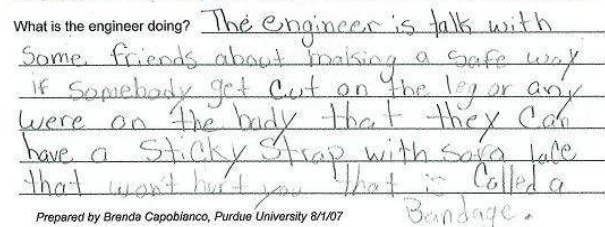 What is the engineer doing? The engineer is talk with
some friends about making a safe way
if somebody get cut on the leg or any
were on the body that they can
have a sticky strap with
that won't hurt you that is called a
Bandage.
Prepared by Brenda Capobianco, Purdue University 8/1/07